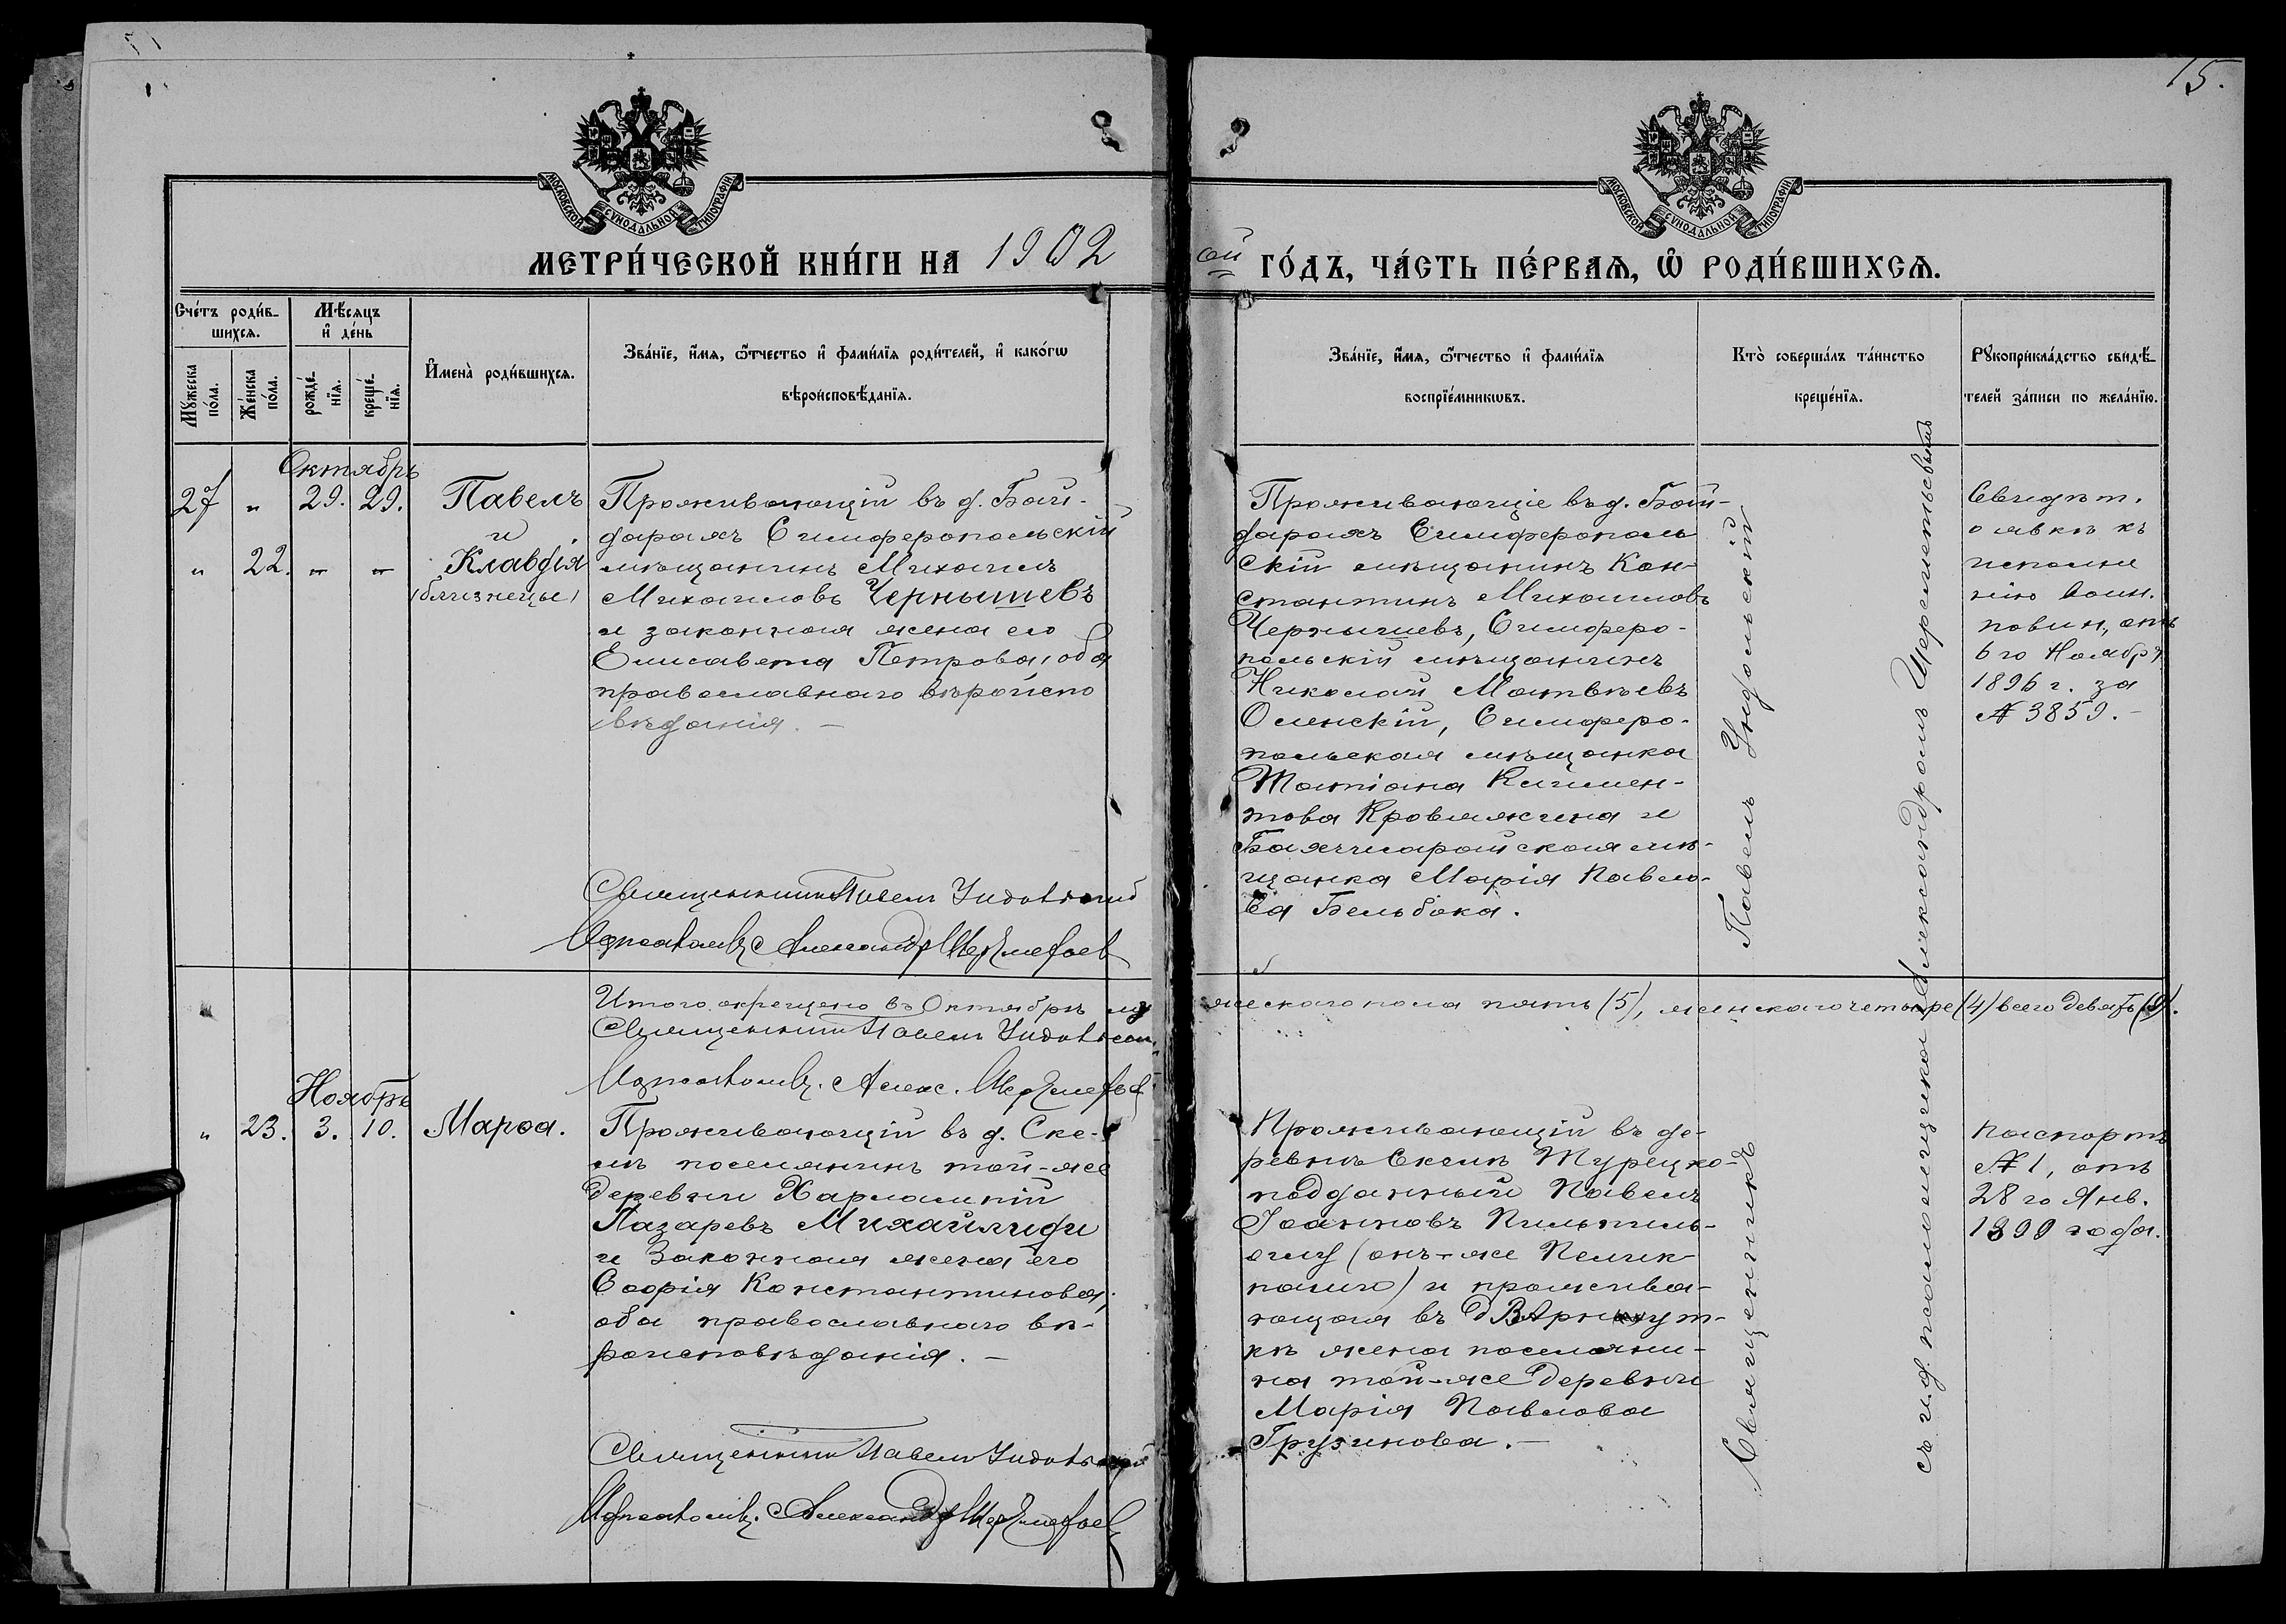 15.
МОСКОВСКОЙ СѴНОДАЛЬНОЙ ТИПОГРАФІИ
МОСКОВСКОЙ СѴНОДАЛЬНОЙ ТИПОГРАФІИ
МЕТРИ́ЧЕСКОЙ КНИ́ГИ НА 1902
ой ГО́ДЪ, ЧА́СТЬ ПЕ́РВАѦ, Ѡ҆ РОДИ́ВШИХСѦ.
Сче́тъ роди́в-
шихсѧ.
Мѣ́сѧцъ
и҆ де́нь
Мꙋ́жеска
по́ла.
Же́нска
по́ла.
рожде́-
нїѧ.
креще́-
нїѧ.
И҆мена̀ роди́вшихсѧ.
Зва́нїе, и҆́мѧ, ѻ҆́тчество и҆ фами́лїѧ роди́телей, и҆ како́гѡ
вѣроисповѣ́данїѧ.
Зва́нїе, и҆́мѧ, ѻ҆́тчество и҆ фами́лїѧ
воспрїе́мникѡвъ.
Кто̀ соверша́лъ та́инство
креще́нїѧ.
Рꙋкоприкла́дство свидѣ́-
телей за́писи по жела́нїю.
Октябрь
27 " 29. 29.
" 22. " "
Павелъ
и
Клавдія
(близнецы)
Проживающій въ д. Бай-
дарахъ Симферопольскій
мѣщанинъ Михаилъ
Михаиловъ Чернышевъ
и законная жена его
Елисавета Петрова, оба
православнаго вѣроиспо
вѣданія. —
Священникъ Павелъ Ундольскій
Псаломщ. Александръ Шереметьев
Проживающіе въ д. Бай-
дарахъ Симферополь
скій мѣщанинъ Кон-
стантинъ Михаиловъ
Чернышевъ, Симферо-
польскій мѣщанинъ
Николай Матвѣевъ
Оленскій, Симферо-
польская мѣщанка
Татіана Климен-
това Кровляжина и
Бахчисарайская мѣ-
щанка Марія Павло-
ва Бельбока.
Свидѣт.
о явкѣ къ
исполне
нію воин.
повин., отъ
6 го Ноября
1896 г. за
№ 3859. —
Итого окрещено въ Октябрѣ му
жескаго пола пять (5), женскаго четыре (4) всего девять (9).
Священникъ Павелъ Ундольскій
Псаломщ. Алекс. Шереметьев
Ноябрь
" 23. 3. 10. Марѳа.
Проживающій въ д. Ске-
лѣ поселянинъ той-же
деревни Харлампій
Лазаревъ Михайлиди
и законная жена его
Софія Константинова,
оба православнаго вѣ-
роисповѣданія. —
Священникъ Павелъ Ундольскій
Псаломщ. Александръ Шереметьев
Проживающій въ де-
ревнѣ Скелѣ Турецко-
подданный Павелъ
Іоанновъ
(онъ-же
) и прожива-
ющая въ д
жена поселяни-
на той-же деревни
Марія Павлова
Грузинова. —
Священникъ Павелъ Ундольскій
съ и. д. псаломщика Александромъ Шереметьевымъ
Паспортъ
№ 1, отъ
28 го Янв.
1899 года.